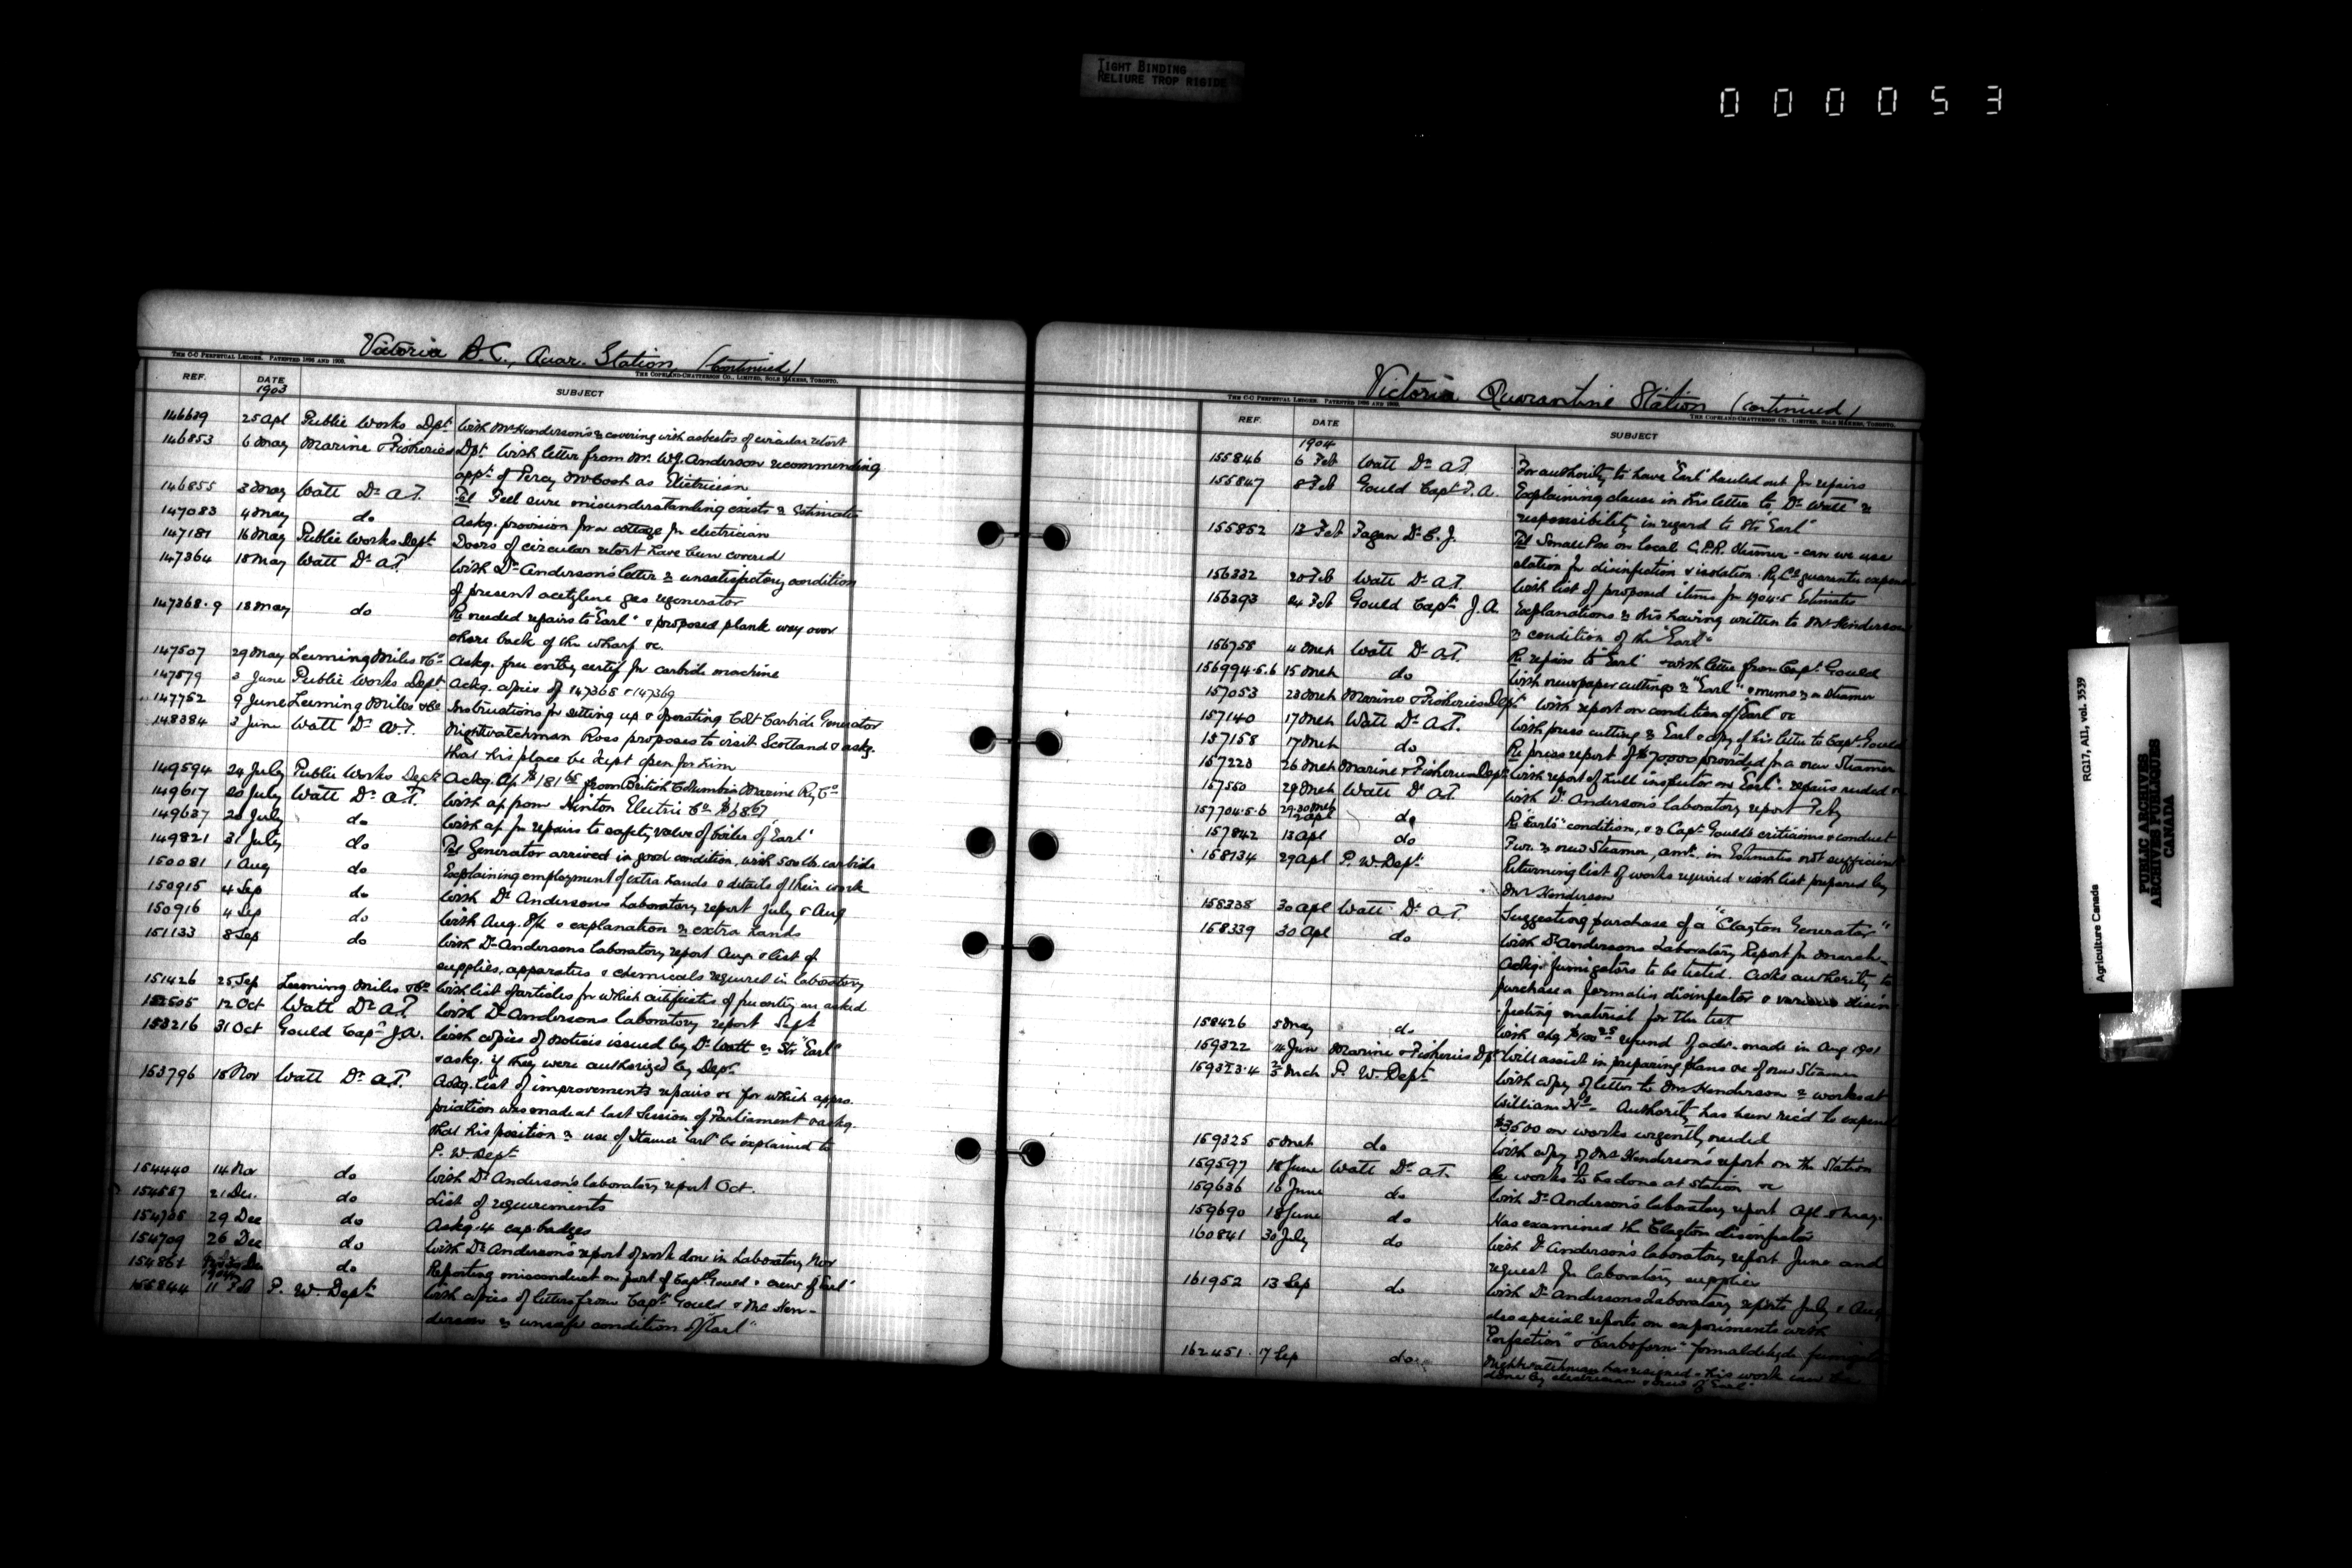 TIGHT BINDING
RELIURE TROP RIGIDE
000053
Victoria B.C., Quar. Station (continued)
THE C-C PERPETUAL LEDGER. PATENTED 1896 AND 1900. THE COPELAND-CHATTERSON CO., LIMITED, SOLE MAKERS, TORONTO.
REF. DATE SUBJECT
1903
146639 25 Apl Public Works Dept With Mr Henderson's covering with asbestos of circular retort
146853 6 May Marine & Fisheries Dpt. With letter from Mr. W.J. Anderson recommending
appt. of Percy McCosh as Electrician
146855 3 May Watt Dr A.T. Tel Feel sure misunderstanding exists re Estimates
147083 4 May do Askg. provision for a cottage for electrician
147187 16 May Public Works Dept Doors of circular retort have been covered
147364 18 May Watt Dr A.T. With Dr Anderson's letter re unsatisfactory condition
of present acetylene gas regenerator
147368-9 18 May do Re needed repairs to "Earl" & proposed plank way over
shore back of the wharf &c.
147507 29 May Leeming Miles & Co Askg. free entry certif for carbide machine
147579 3 June Public Works Dept. Ackg. copies of 147368 & 147369
147752 9 June Leeming Miles & Co Instructions for setting up & operating Colt Carbide Generator
148384 3 June Watt Dr A.T. Nightwatchman Ross proposes to visit Scotland & askg.
that his place be kept open for him
149594 24 July Public Works Dept Ackg. a/c $181.65 from British Columbia Marine Ry Co
149617 20 July Watt Dr A.T. With a/c from Hinton Electric Co
149637 20 July do With a/c for repairs to safety valve of boiler of "Earl"
149821 31 July do Tel Generator arrived in good condition, with 500 lb. carbide
150081 1 Aug do Explaining employment of extra hands & details of their work
150915 4 Sep do With Dr Anderson's Laboratory report July & Aug
150916 4 Sep do With Aug. & explanation re extra hands
151133 8 Sep do With Dr Andersons laboratory report Aug. & list of
supplies, apparatus & chemicals required in laboratory
151426 25 Sep Leeming Miles & Co With list of articles for which certificates of free entry are asked
152505 12 Oct Watt Dr A.T. With Dr Andersons laboratory report Sept
153216 31 Oct Gould Capt J.A. With copies of notices issued by Dr Watt re Str "Earl"
& askg. if they were authorized by Dept.
153796 18 Nov Watt Dr A.T. Askg. list of improvements repairs &c for which appro-
priation was made at last Session of Parliament & askg.
that his position re use of Steamer "Earl" be explained to
P. W. Dept
154440 14 Nov do With Dr Anderson's laboratory report Oct.
154587 21 Dec. do List of requirements
154708 29 Dec do Askg. 4 cap badges
154709 26 Dec do With Dr Anderson's report of work done in Laboratory Nov
154861 do Reporting misconduct on part of Capt. Gould & crew of "Earl"
1904
155844 11 Feb P. W. Dept. With copies of letters from Capt Gould & Mr Hen-
derson re unsafe condition of "Earl"
Victoria Quarantine Station (continued)
THE C-C PERPETUAL LEDGER. PATENTED 1896 AND 1900. THE COPELAND-CHATTERSON CO., LIMITED, SOLE MAKERS, TORONTO.
REF. DATE SUBJECT
1904
155846 6 Feb Watt Dr A.T. For authority to have "Earl" hauled out for repairs
155847 8 Feb Gould Capt J.A. Explaining clause in his letter to Dr Watt re
responsibility in regard to Str "Earl"
155852 12 Feb Fagan Dr C.J. Tel Small Pox on local C.P.R. Steamer - can we use
station for disinfection & isolation. Ry Co guarantee expense
156332 20 Feb Watt Dr A.T. With list of proposed items for 1904-5 Estimates
156393 24 Feb Gould Capt J.A. Explanations re his having written to Mr Henderson
re condition of the "Earl"
156758 4 Mch Watt Dr A.T. Re repairs to "Earl" & with letter from Capt Gould
156994-5-6 15 Mch do With newspaper cuttings re "Earl" & memo re a steamer
157053 23 Mch Marine & Fisheries Dept. With report on condition of "Earl" &c
157140 17 Mch Watt Dr A.T. With press cutting re Earl & copy of his letter to Capt. Gould
157158 17 Mch do Re press report of $70000 provided for a new Steamer
157223 26 Mch Marine & Fisheries Dept. With report of hull inspector on "Earl" repairs needed
157550 29 Mch Watt Dr A.T. With Dr. Anderson's laboratory report Feby
157704-5-6 29-30 Mch 2 Apl do Re "Earl's" condition, & re Capt Gould's criticisms & conduct
157842 13 Apl do Fur. re new Steamer, amt. in Estimates not sufficient
158134 29 Apl P. W. Dept. Returning list of works required & with list prepared by
Mr Henderson
158338 30 Apl Watt Dr A.T. Suggesting purchase of a "Clayton Generator"
158339 30 Apl do With Dr Andersons Laboratory Report for March.
Askg. fumigators to be tested. Asks authority to
purchase a formalin disinfector & various disin-
fecting material for the test
158426 5 May do With chq $100.25 refund of adv. made in Aug 1901
159322 14 Jun Marine & Fisheries Dpt Will assist in preparing plans &c of new Steamer
159323-4 5 Mch P. W. Dept. With copy of letter to Mr Henderson re works at
William Hd. Authority has been rec'd to expend
$3500 on works urgently needed
159325 5 Mch do With copy of Mr Henderson's report on the Station
159597 18 June Watt Dr A.T. Re works to be done at station &c
159636 16 June do With Dr Anderson's laboratory report Apl & May.
159690 18 June do Has examined the Clayton disinfector
160841 30 July do With Dr Anderson's laboratory report June and
request for laboratory supplies
161952 13 Sep do With Dr Andersons Laboratory reports July & Aug
also special reports on experiments with
"Perfection" & "Carboform" formaldehyde
162451 17 Sep do Nightwatchman has resigned & his work can be
done by electrician & crew of "Earl"
Agriculture Canada RG17, A11, vol. 3539
PUBLIC ARCHIVES
ARCHIVES PUBLIQUES
CANADA